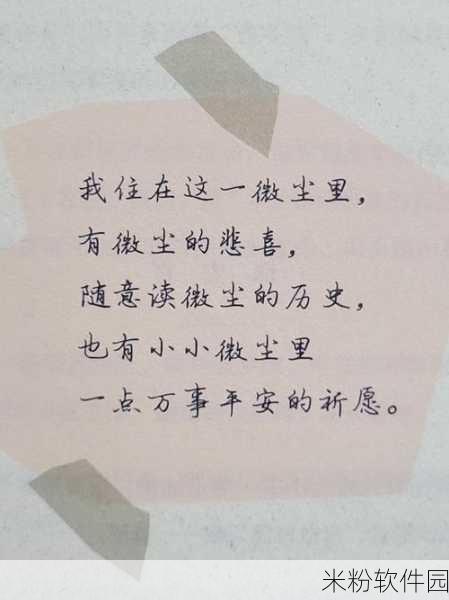 我住在这一微尘里，
有微尘的悲喜，
随意读微尘的历史，
也有小小微尘里
一点万事平安的祈愿。
米粉软件园